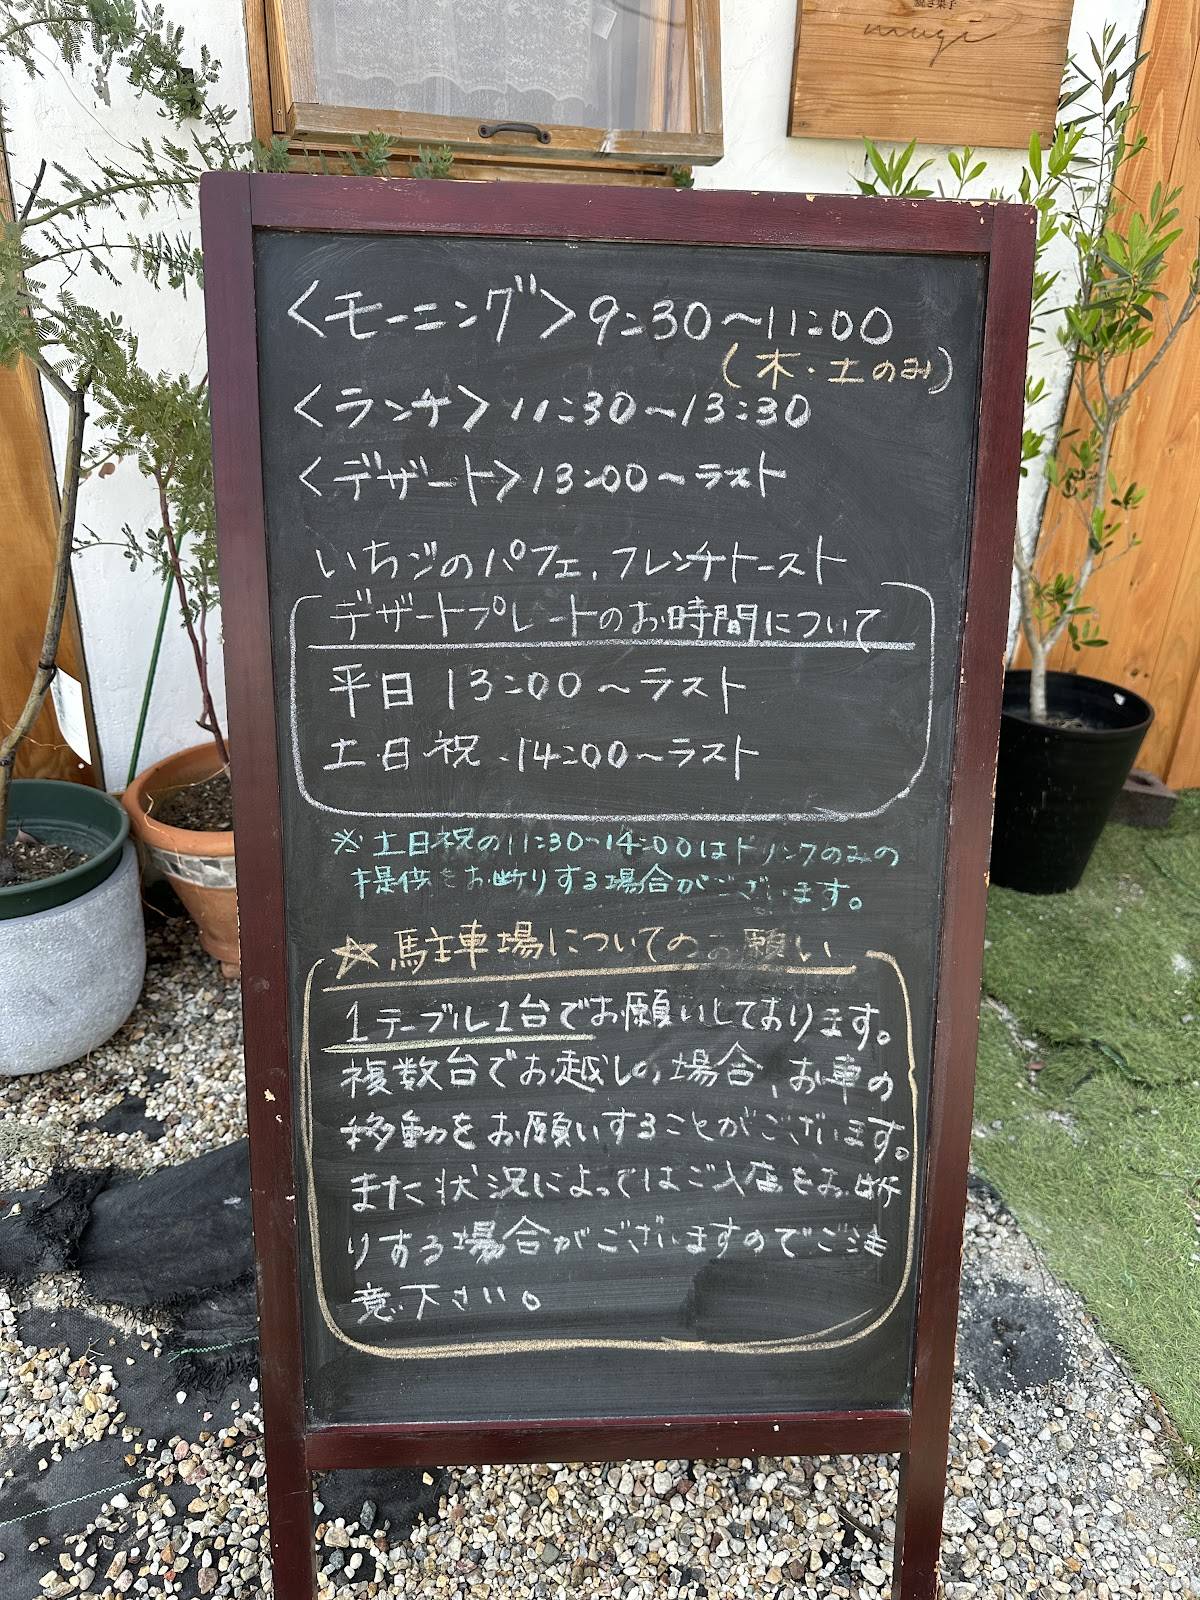 焼き菓子
mugi
<モーニング> 9:30〜11:00
(木・土のみ)
<ランチ> 11:30〜13:30
<デザート> 13:00〜ラスト
いちごのパフェ、フレンチトースト
デザートプレートのお時間について
平日 13:00〜ラスト
土・日・祝 14:00〜ラスト
※土日祝の11:30〜14:00はドリンクのみの
提供をお断りする場合がございます。
☆駐車場についてのお願い
1テーブル1台でお願いしております。
複数台でお越しの場合、お車の
移動をお願いすることがございます。
また状況によってはご入店をお断
りする場合がございますのでご注
意下さい。